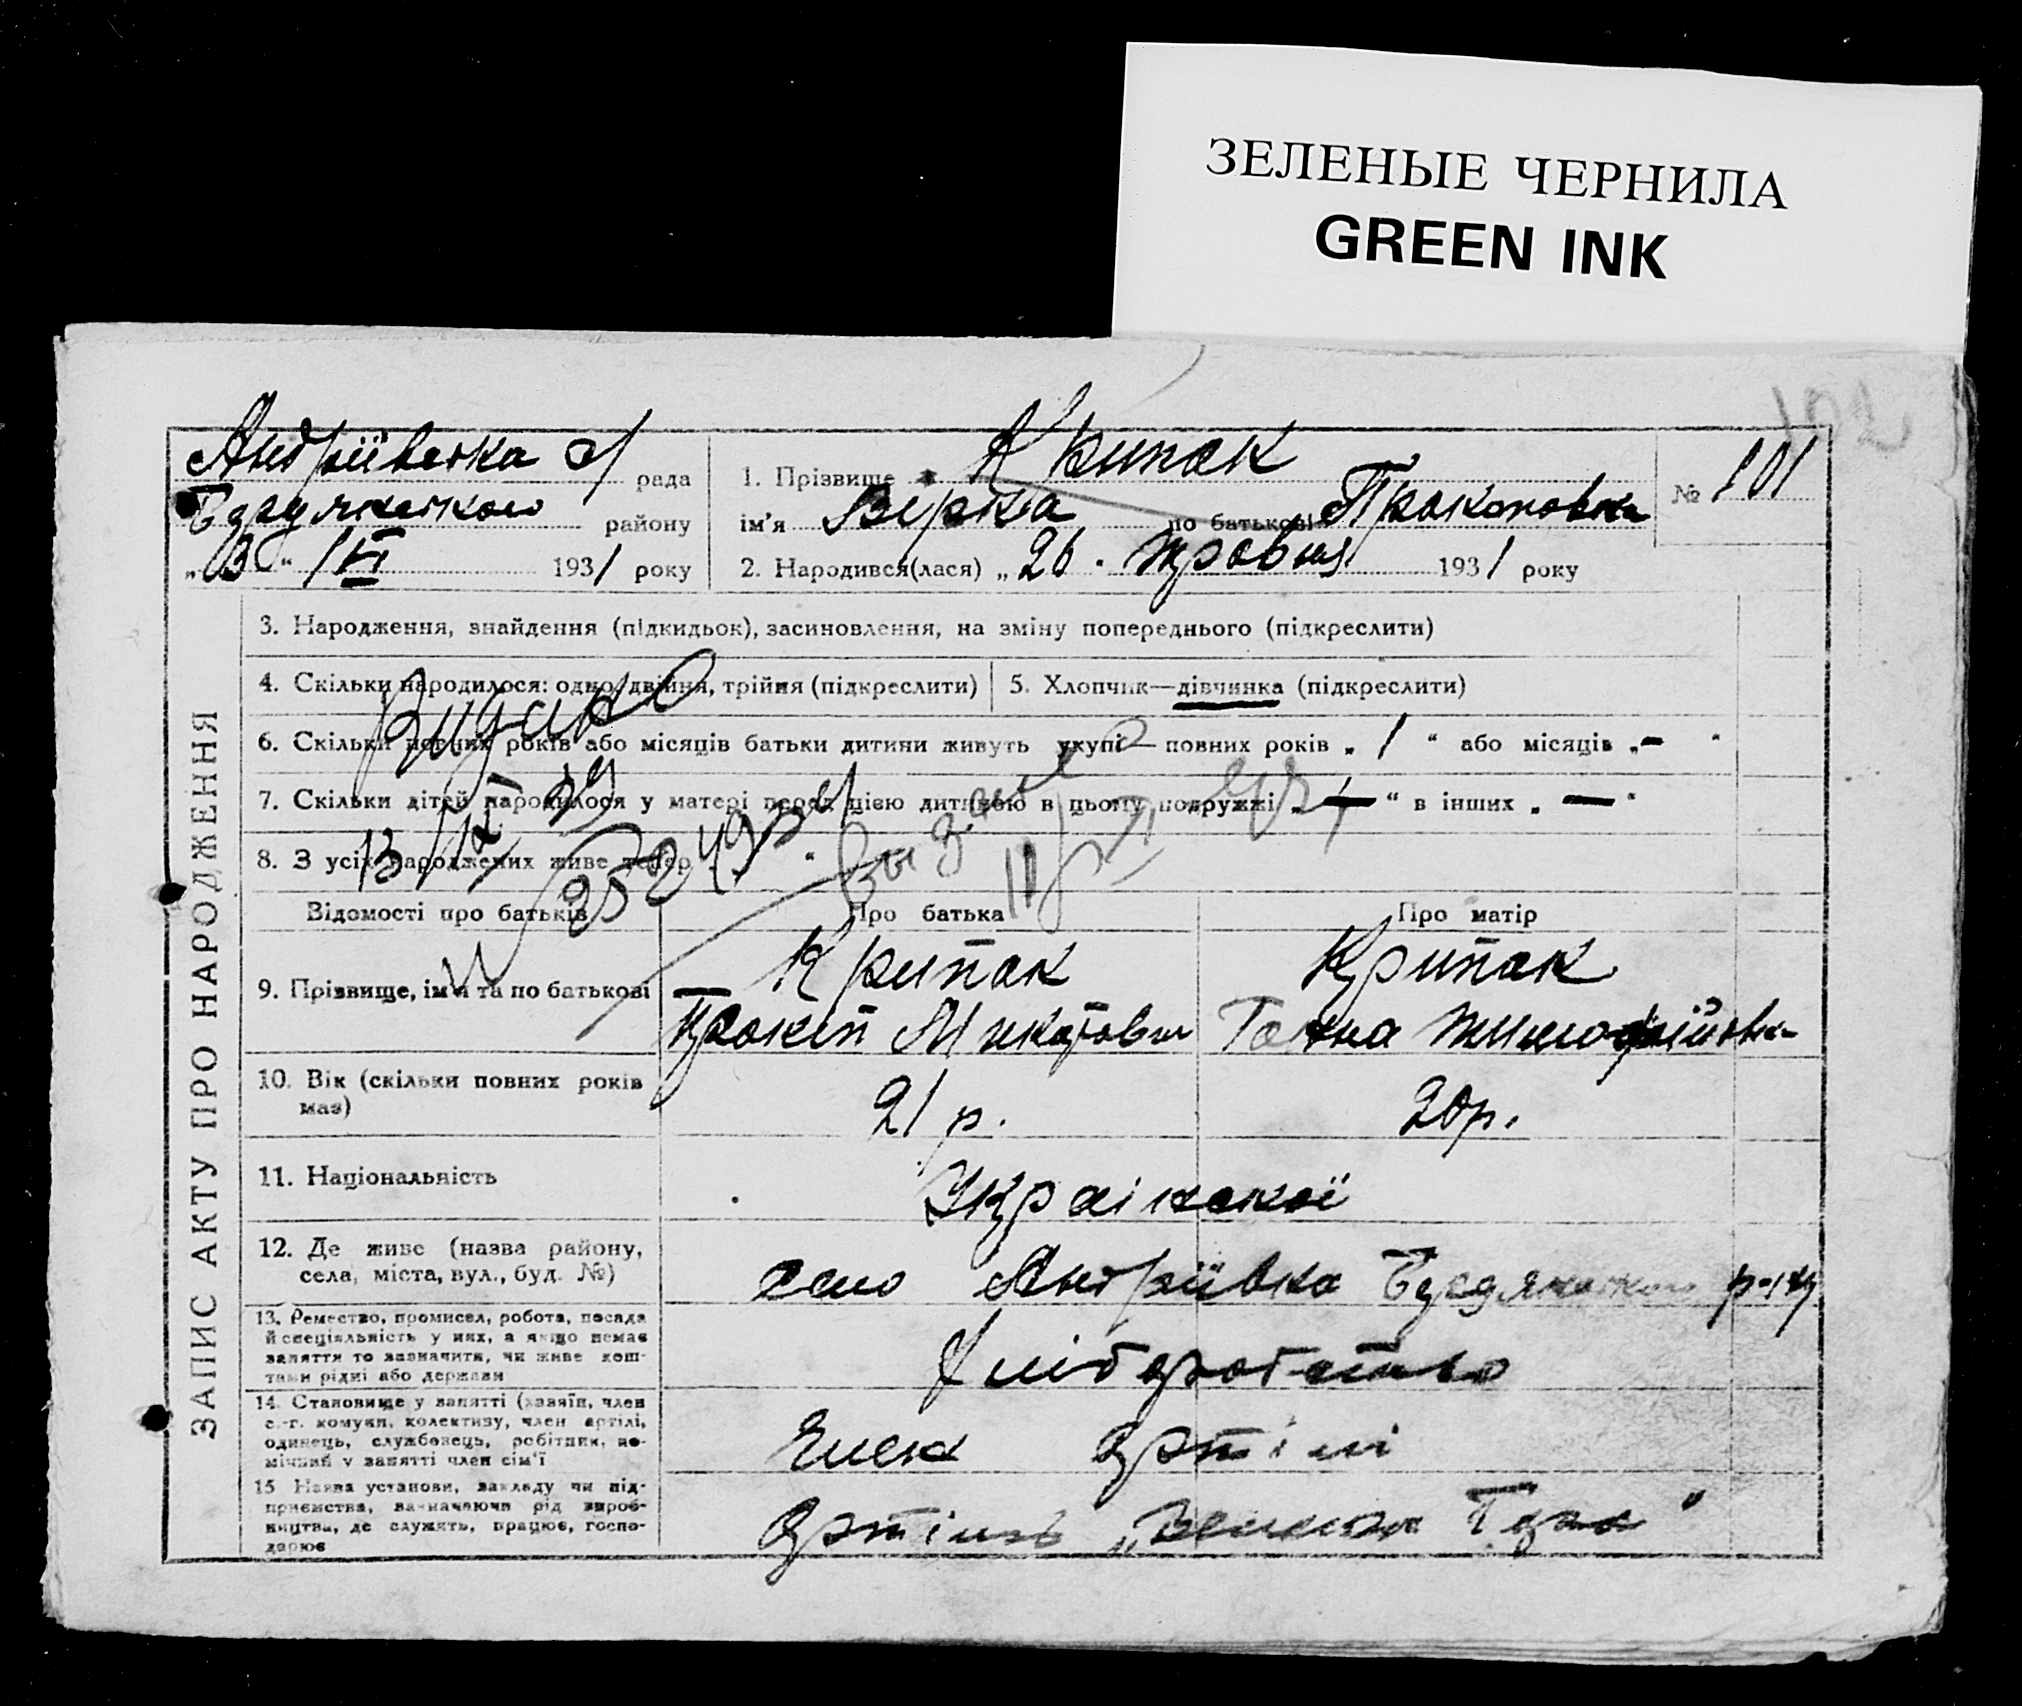 ЗЕЛЕНЫЕ ЧЕРНИЛА
GREEN INK
102
Андріївська с/ рада
Бердянського району
„3“ /VI 1931 року
1. Прізвище Крипак
ім'я Вірка по батькові Прокоповна
№ 101
2. Народився(лася) „26. травня 1931 року
ЗАПИС АКТУ ПРО НАРОДЖЕННЯ
3. Народження, знайдення (підкидьок), засиновлення, на зміну попереднього (підкреслити)
4. Скільки народилося: одно, двійня, трійня (підкреслити)
5. Хлопчик—дівчинка (підкреслити)
Видано
6. Скільки повних років або місяців батьки дитини живуть укупі— повних років „ 1 “ або місяців „ – “
7. Скільки дітей народилося у матері перед цією дитиною в цьому подружжі „ — “ в інших „ — “
8. З усіх народжених живе тепер
Відомості про батьків
Про батька
Про матір
9. Прізвище, ім'я та по батькові
Крипак
Прокіп
Крипак
Ганна Тимофійовна
10. Вік (скільки повних років має)
21 р.
20 р.
11. Національність
Української
12. Де живе (назва району, села, міста, вул., буд. №)
село Андріївка Бердянського р-ну
13. Ремество, промисел, робота, посада й спеціяльність у них, а якщо немає заняття то зазначити, чи живе коштами рідні або держави
Хліборобство
14. Становище у занятті (хазяїн, член с.-г. комуни, колективу, член артілі, одинець, службовець, робітник, помічний у занятті член сім'ї
Член артілі
15 Назва установи, закладу чи підприємства, зазначаючи рід виробництва, де служать, працює, господарює
Артіль